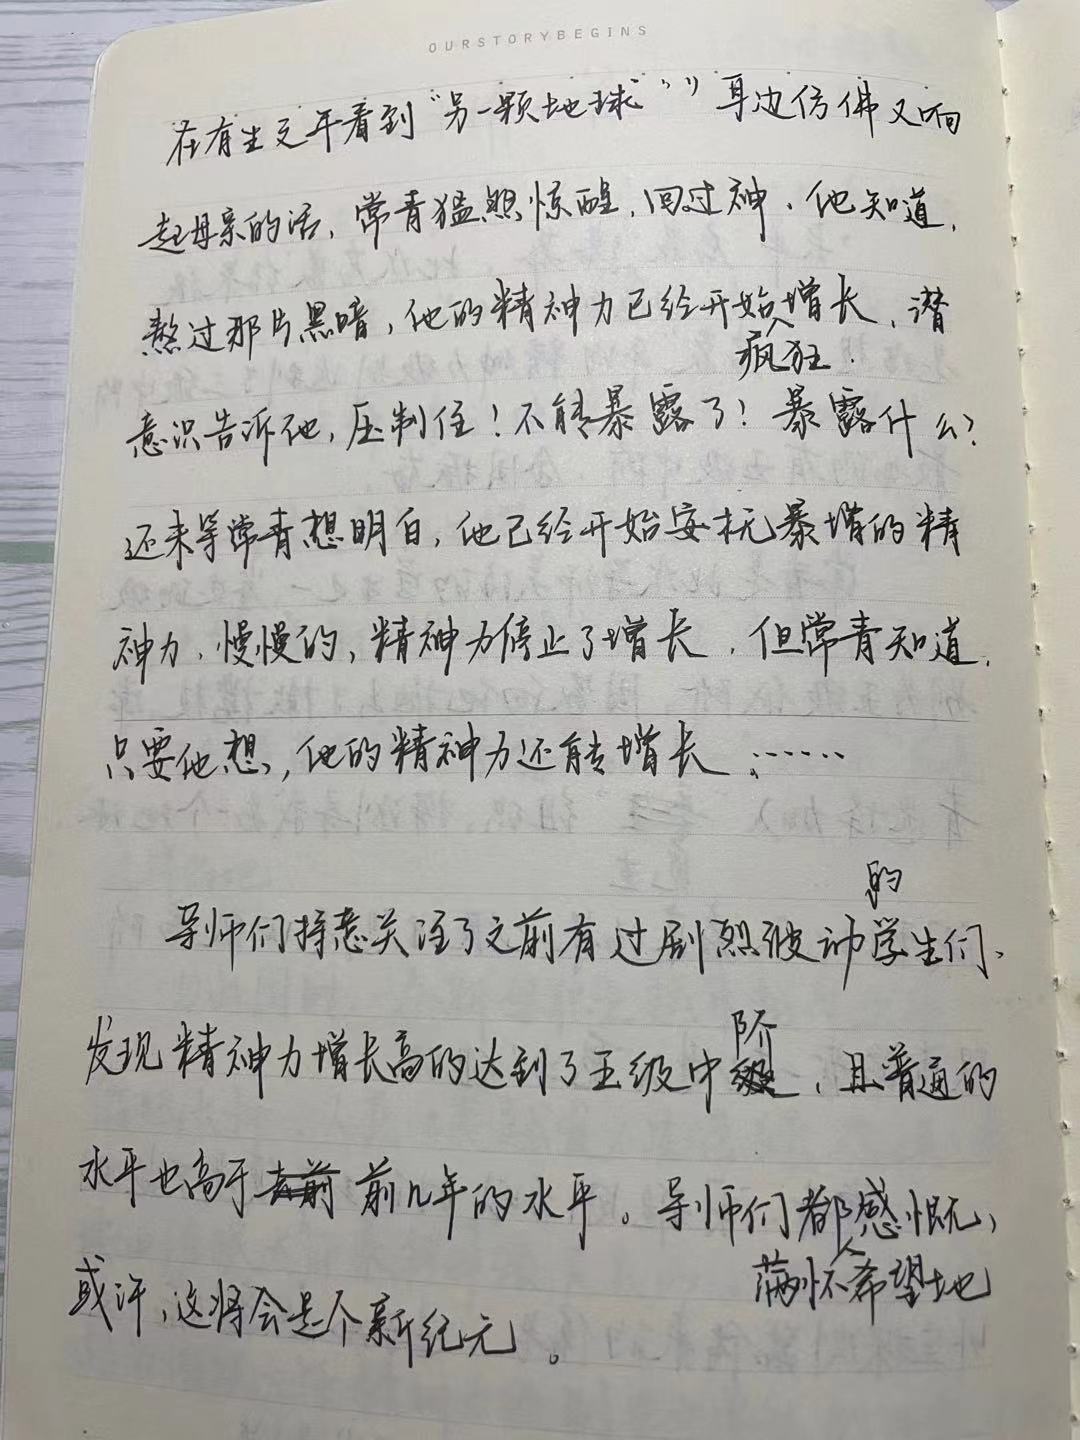 OURSTORYBEGINS
在有生之年看到“另一颗地球”” 耳边仿佛又响
起母亲的话，常青猛然惊醒，回过神，他知道，
熬过那片黑暗，他的精神力已经开始增长，潜
疯狂
意识告诉他，压制住！不能暴露了！暴露什么？
还未等常青想明白，他已经开始安抚暴增的精
神力，慢慢的，精神力停止了增长，但常青知道，
只要他想，他的精神力还能增长，……
的
导师们特意关注了之前有过剧烈波动学生们、
发现精神力增长高的达到了王级中阶，且普通的
水平也高于前几年的水平。导师们都感慨，
满怀希望地
或许，这将会是个新纪元。